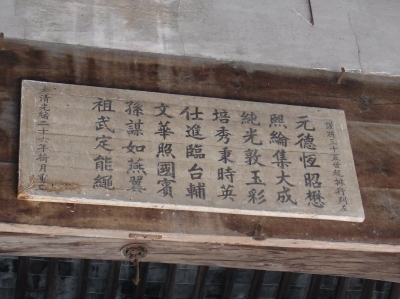 元德恆昭懋
熙綸集大成
純光敦玉彩
培秀東時英
仕進臨台輔
文華照國賓
孫謀如燕翼
祖武定能繩
清光緒二十二年荷月